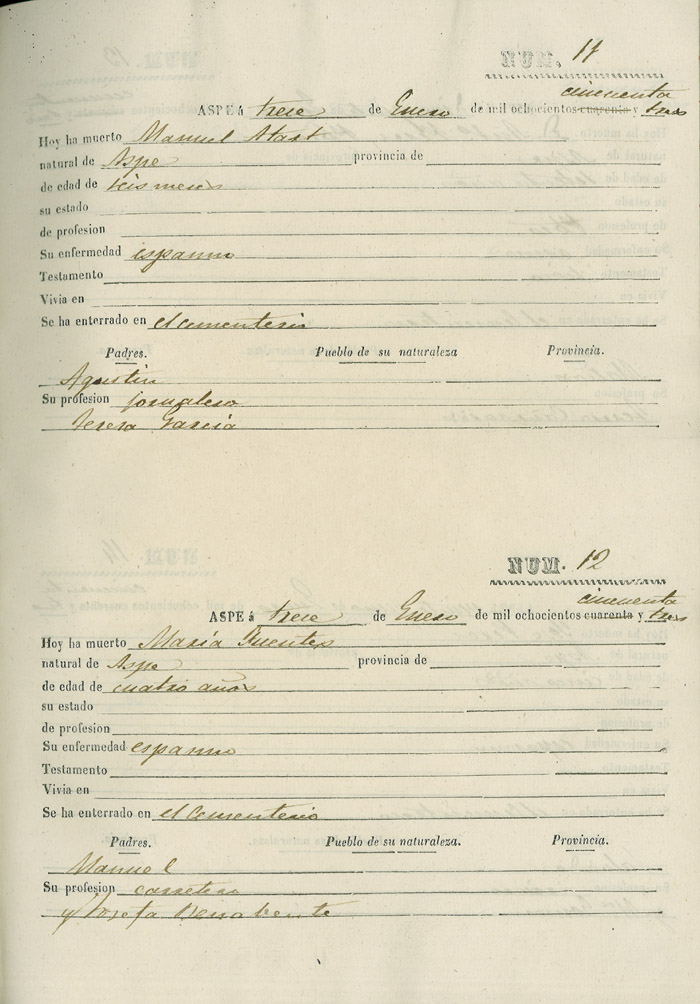 NUM. 11
cincuenta
ASPE á trece de Enero de mil ochocientos cuarenta y tres
Hoy ha muerto Manuel
natural de Aspe provincia de
de edad de seis meses
su estado
de profesion
Su enfermedad espasmo
Testamento
Vivia en
Se ha enterrado en el cementerio
Padres. Pueblo de su naturaleza Provincia.
Agustin
Su profesion jornalero
Teresa Garcia
NUM. 12
cincuenta
ASPE á trece de Enero de mil ochocientos cuarenta y tres
Hoy ha muerto Maria Fuentes
natural de Aspe provincia de
de edad de cuatro años
su estado
de profesion
Su enfermedad espasmo
Testamento
Vivia en
Se ha enterrado en el cementerio
Padres. Pueblo de su naturaleza. Provincia.
Manuel
Su profesion carretero
y Josefa Benabente